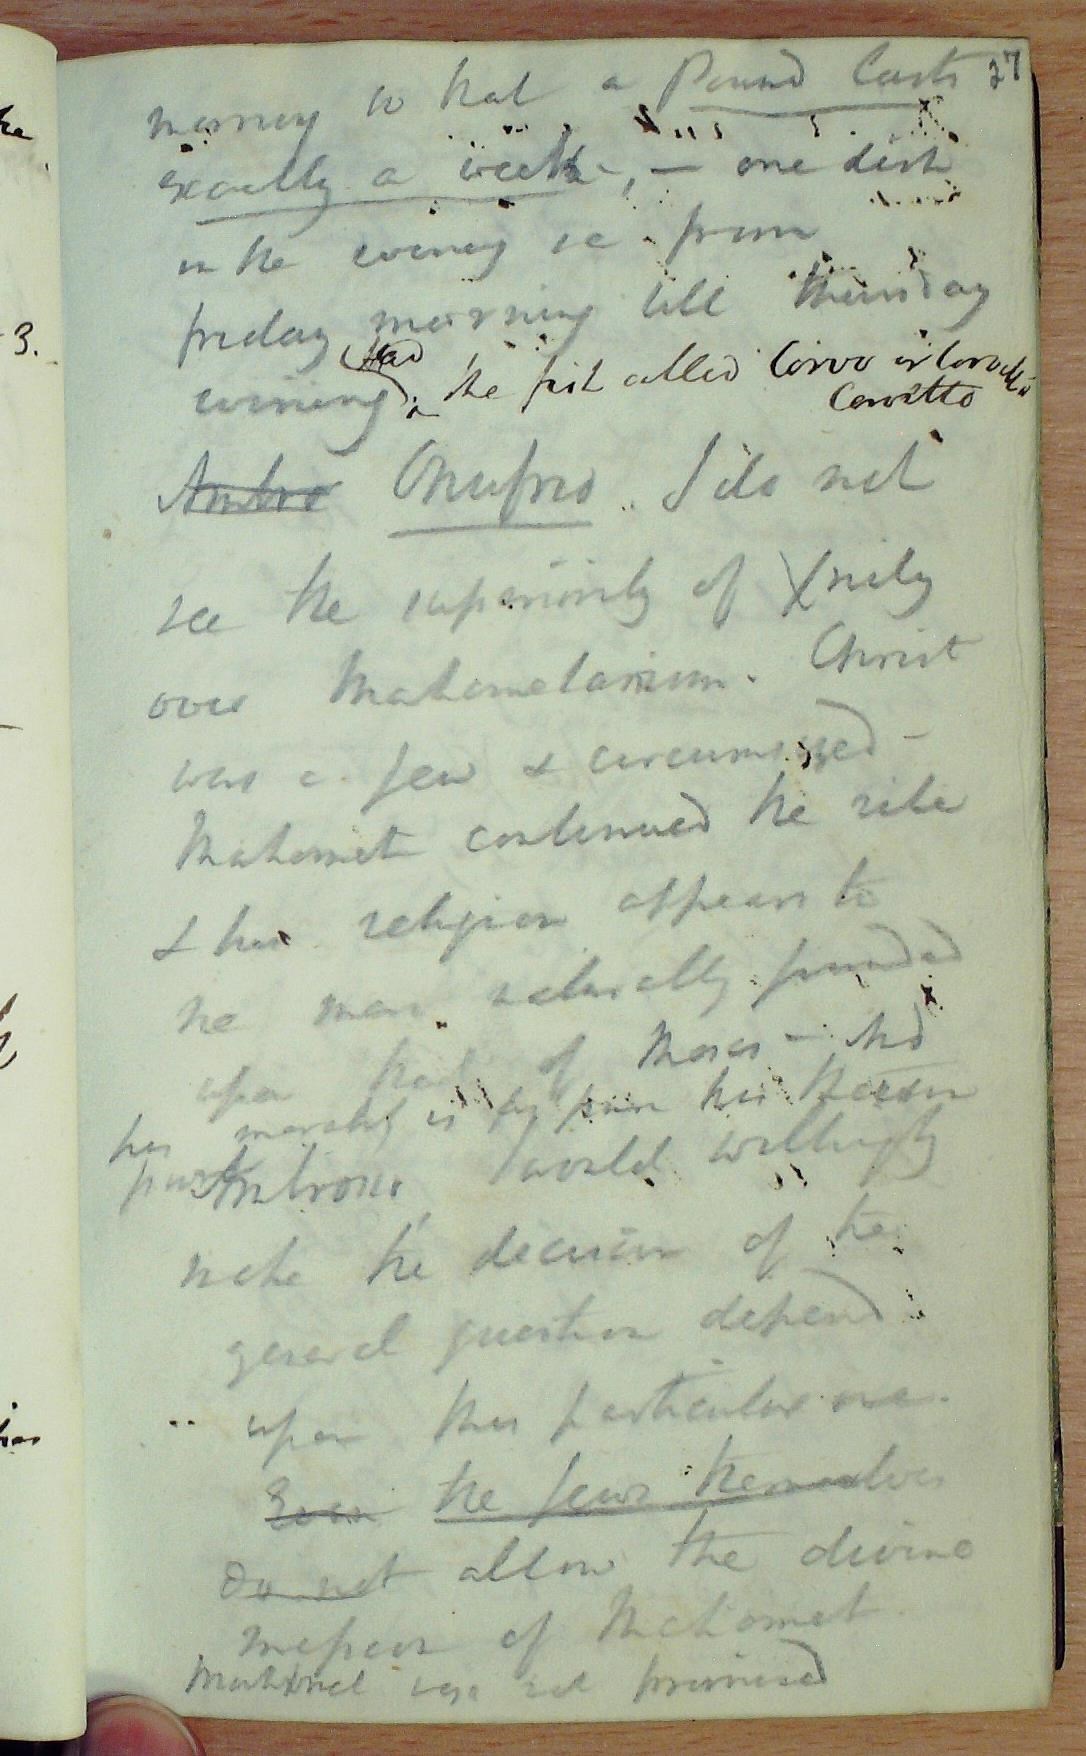 27
morning so that a Pound lasts
exactly a week -, - one dish
in the evening ie from
friday morning till thursday
evening. Had the fish called Corvo or
Corvetto
Ambro Onufrio. I do not
see the superiority of Xnity
over Mahometanism. Christ
was a Jew & circumcised -
Mahomet continued the rite
& his religion appears to
me more naturally founded
upon that of Moses - And
his morality is as pure his
Ambrosio, I would willingly
make the decision of the
general question depend
upon this particular one.
Even the Jews themselves
do not allow the divine
mission of Mahomet.
Mahomet was not promised